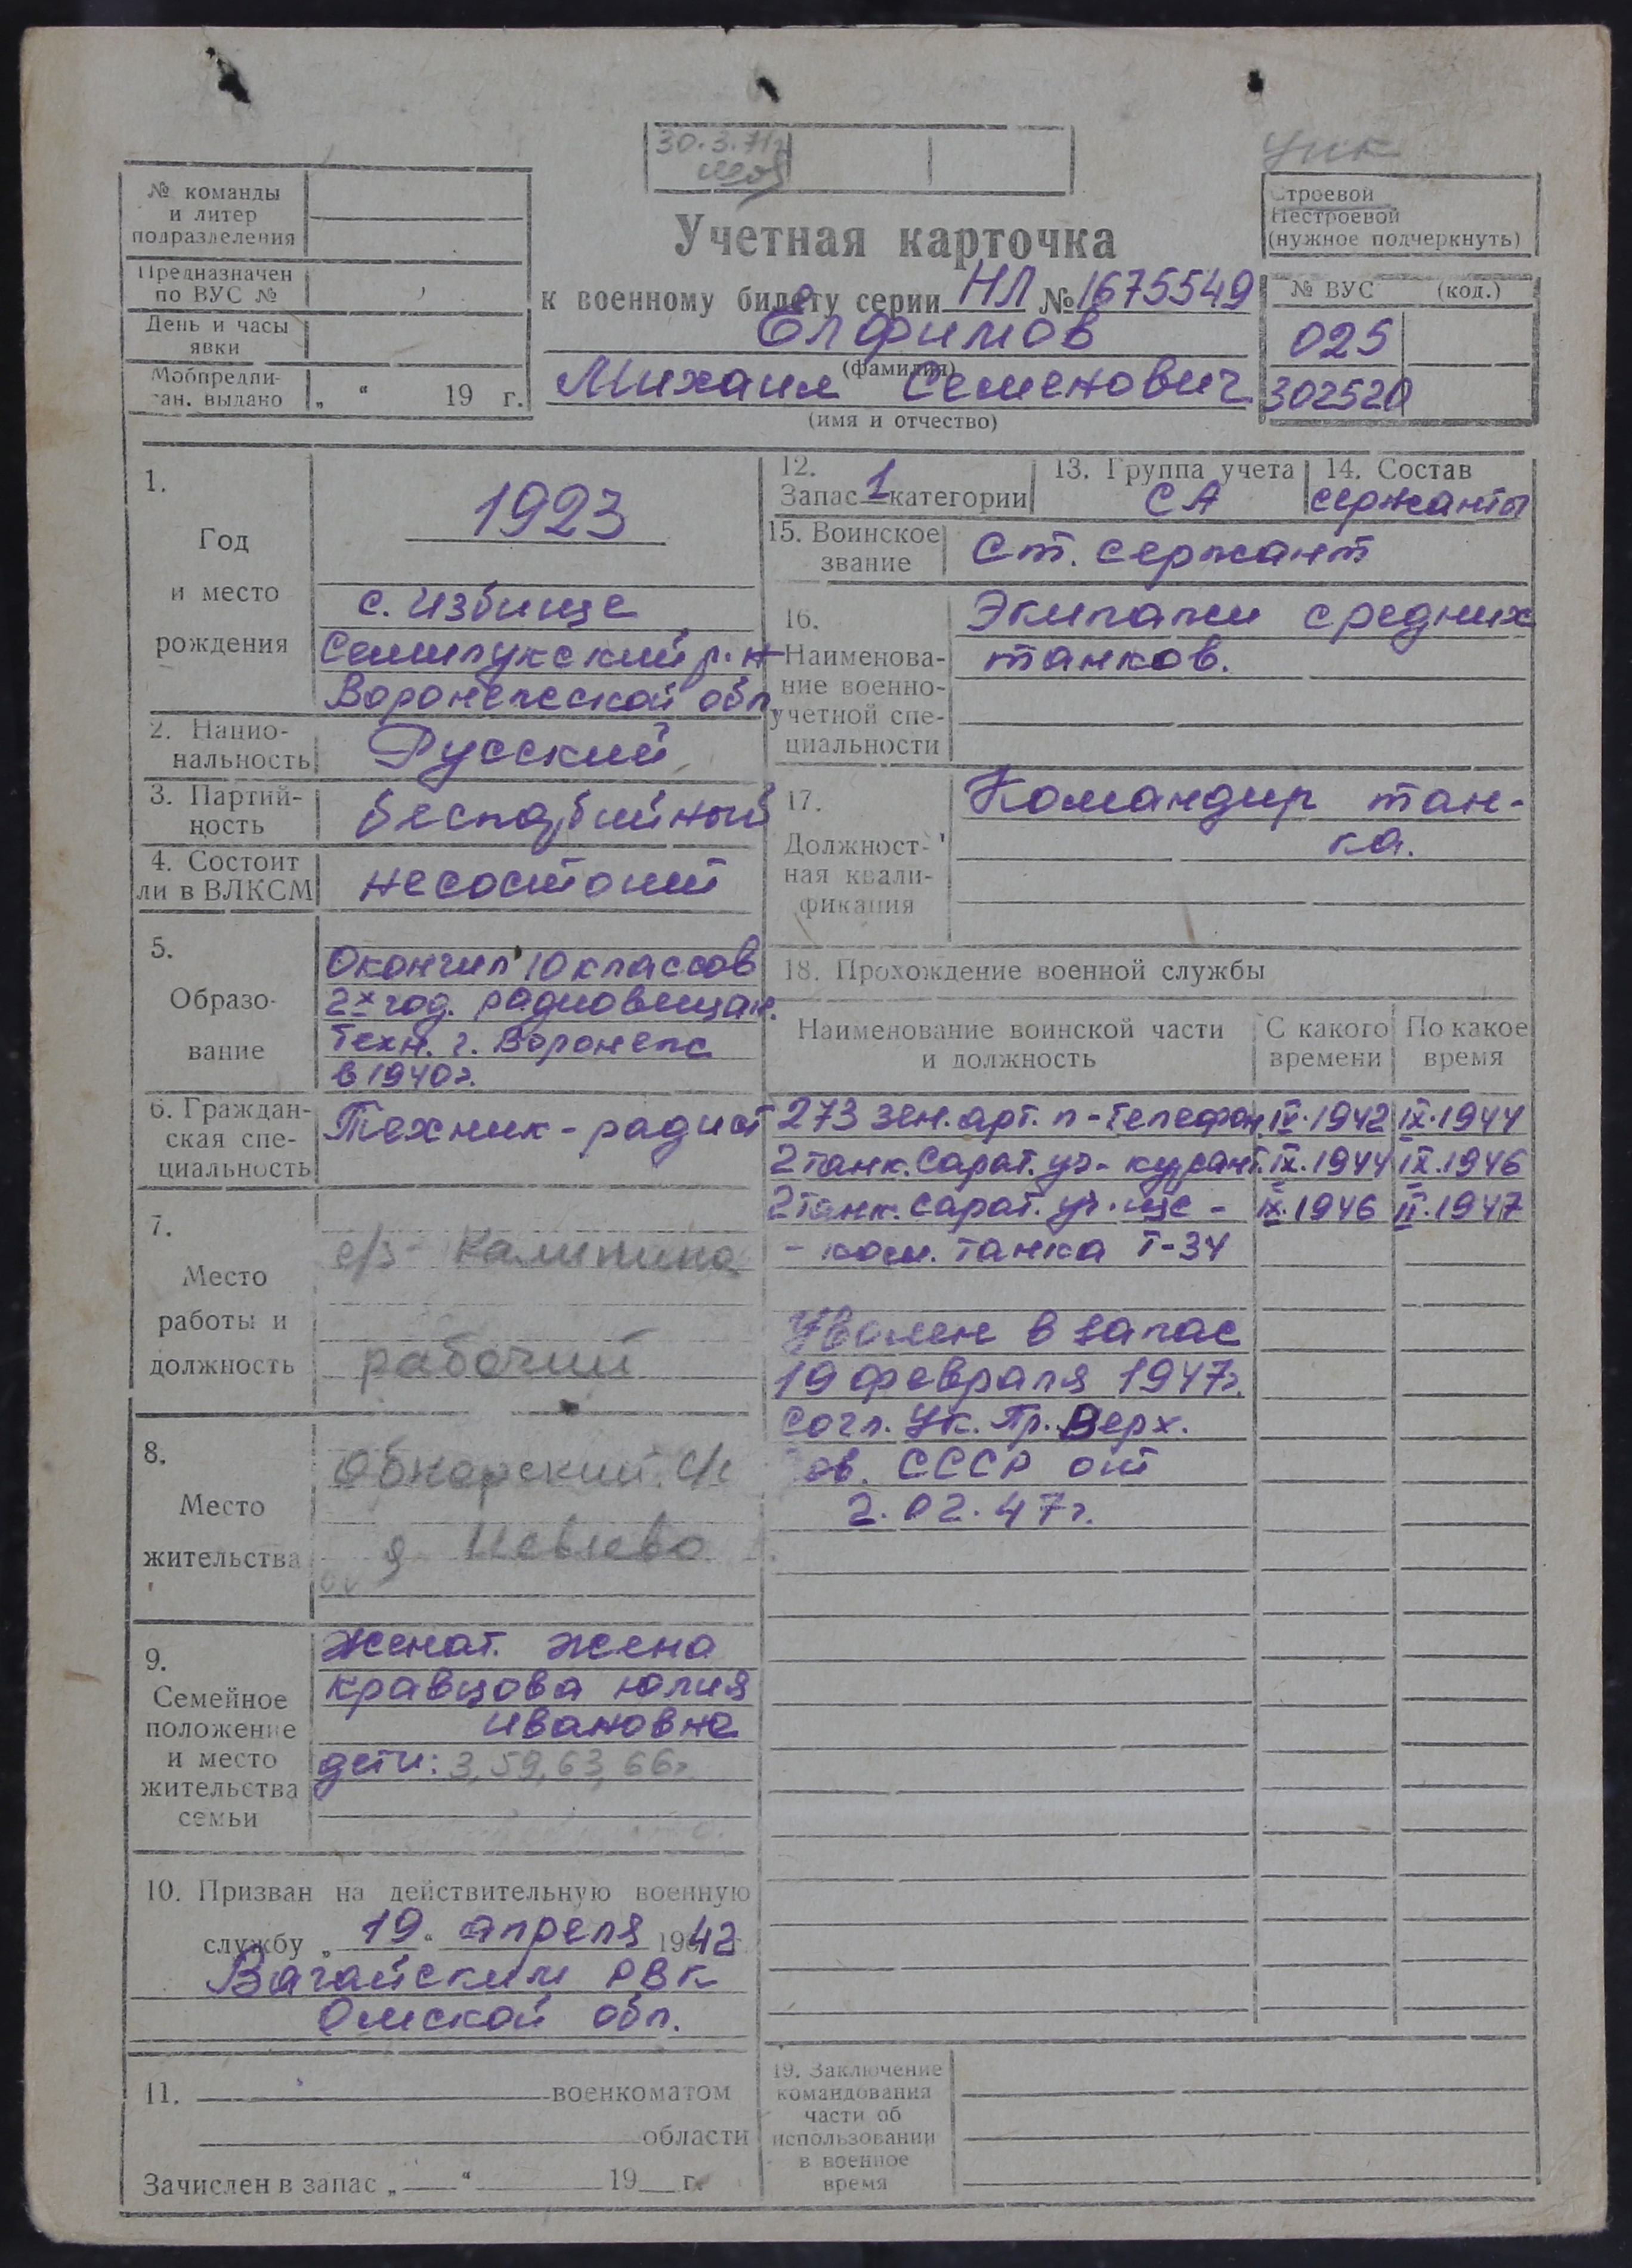 30.3.71г
№ команды
и литер
подразделения
Предназначен
по ВУС №
День и часы
явки
Мобпредпи-
сан. выдано „ “ 19 г.
Учетная карточка
к военному билету серии НЛ № 1675549
Елфимов
(фамилия)
Михаил Семенович
(имя и отчество)
Строевой
Нестроевой
(нужное подчеркнуть)
№ ВУС (код.)
025
302520
1.
Год
и место
рождения
1923
с. Избище
Семилукский р-н
Воронежской обл.
2. Нацио-
нальность
Русский
3. Партий-
ность
беспартийный
4. Состоит
ли в ВЛКСМ
несостоит
5.
Образо-
вание
Окончил 10 классов
2х год. радиовещан.
Техн. г. Воронеже
в 1940г.
6. Граждан-
ская спе-
циальность
Техник-радист
7.
Место
работы и
должность
с/з- Калинина
рабочий
8.
Место
жительства
с/с
д
9.
Семейное
положение
и место
жительства
семьи
Женат. жена
Кравцова Юлия
Ивановна
дети: 3, 59, 63, 66г.
10. Призван на действительную военную
службу „ 19 “ апреля 1942
Вагайским РВК
Омской обл.
11. военкоматом
области
Зачислен в запас „ “ 19 г.
12.
Запас 1 категории
13. Группа учета
СА
14. Состав
сержанты
15. Воинское
звание
Ст. сержант
16.
Наименова-
ние военно-
учетной спе-
циальности
Экипажи средних
танков.
17.
Должност-
ная квали-
фикация
Командир тан-
ка.
18. Прохождение военной службы
Наименование воинской части
и должность
С какого
времени
По какое
время
273 зен. арт. п-телефон. IV.1942 IX.1944
2 танк. Сарат. уч- курсант. IX.1944 IX.1946
2 танк. Сарат. уч-ще - IX.1946 II.1947
- ком. танка Т-34
Уволен в запас
19 февраля 1947г.
согл. Ук. Пр. Верх.
ов. СССР от
2.02.47г.
19. Заключение
командования
части об
использовании
в военное
время